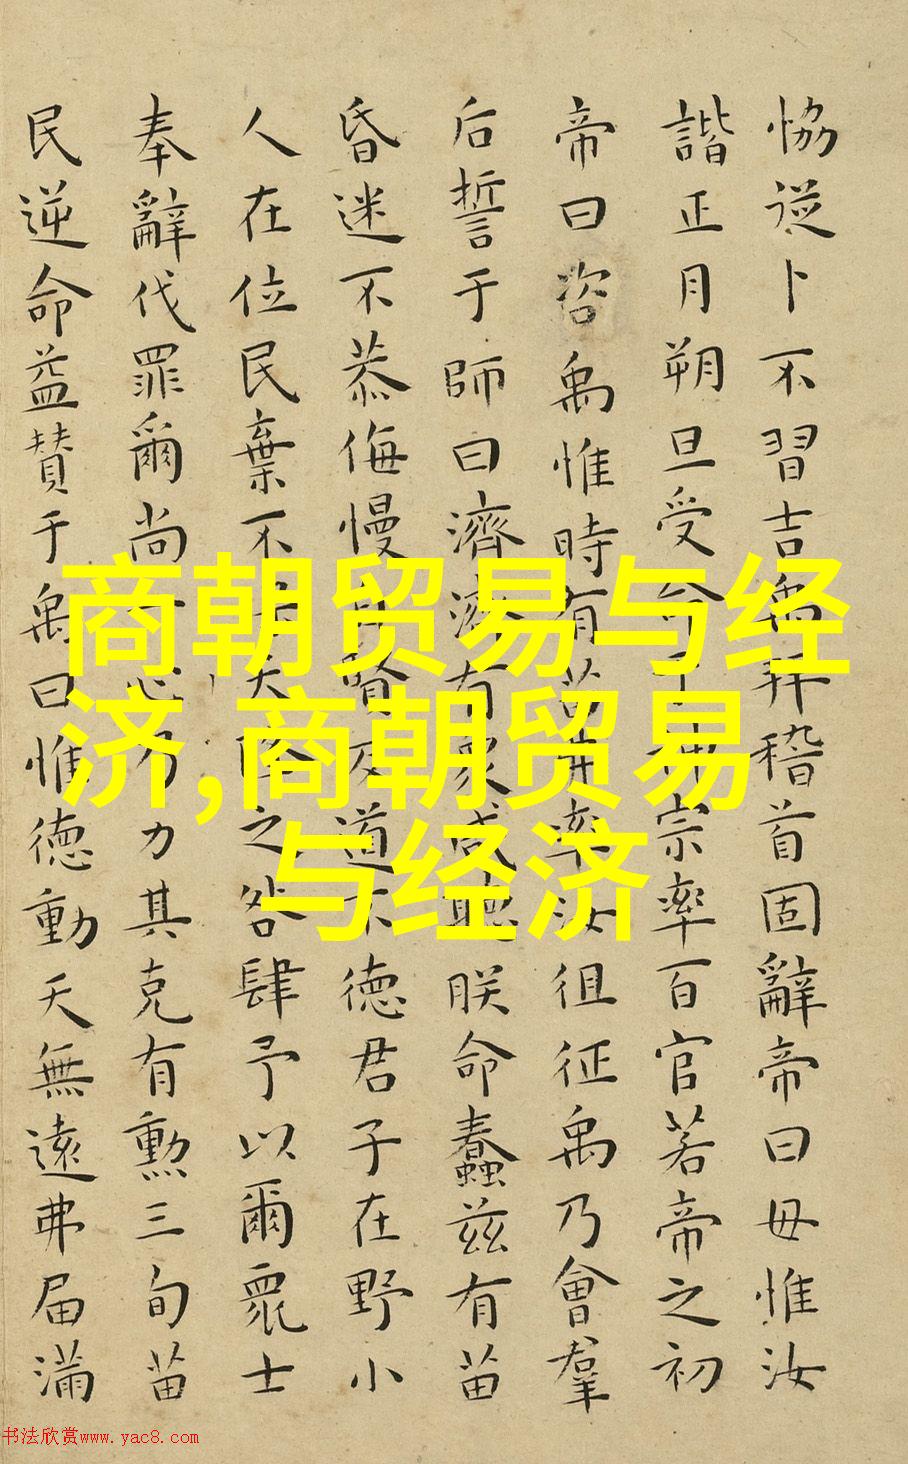 恊從卜不習吉禹拜稽首固辭帝曰毋惟汝
諧正月朔旦受命于神宗率百官若帝之初
帝曰咨禹惟時有苗弗率汝徂征禹乃會羣
后誓于師曰濟濟有眾咸聽朕命蠢茲有苗
昏迷不恭侮慢自賢反道敗德君子在野小
人在位民棄不保天降之咎肆予以爾眾士
奉辭伐罪爾尚一心乃力其克有勳三旬苗
民逆命益贊于禹曰惟德動天無遠弗届滿
商朝贸易与经
济,商朝贸易
与经济
书法欣赏www.yac8.com